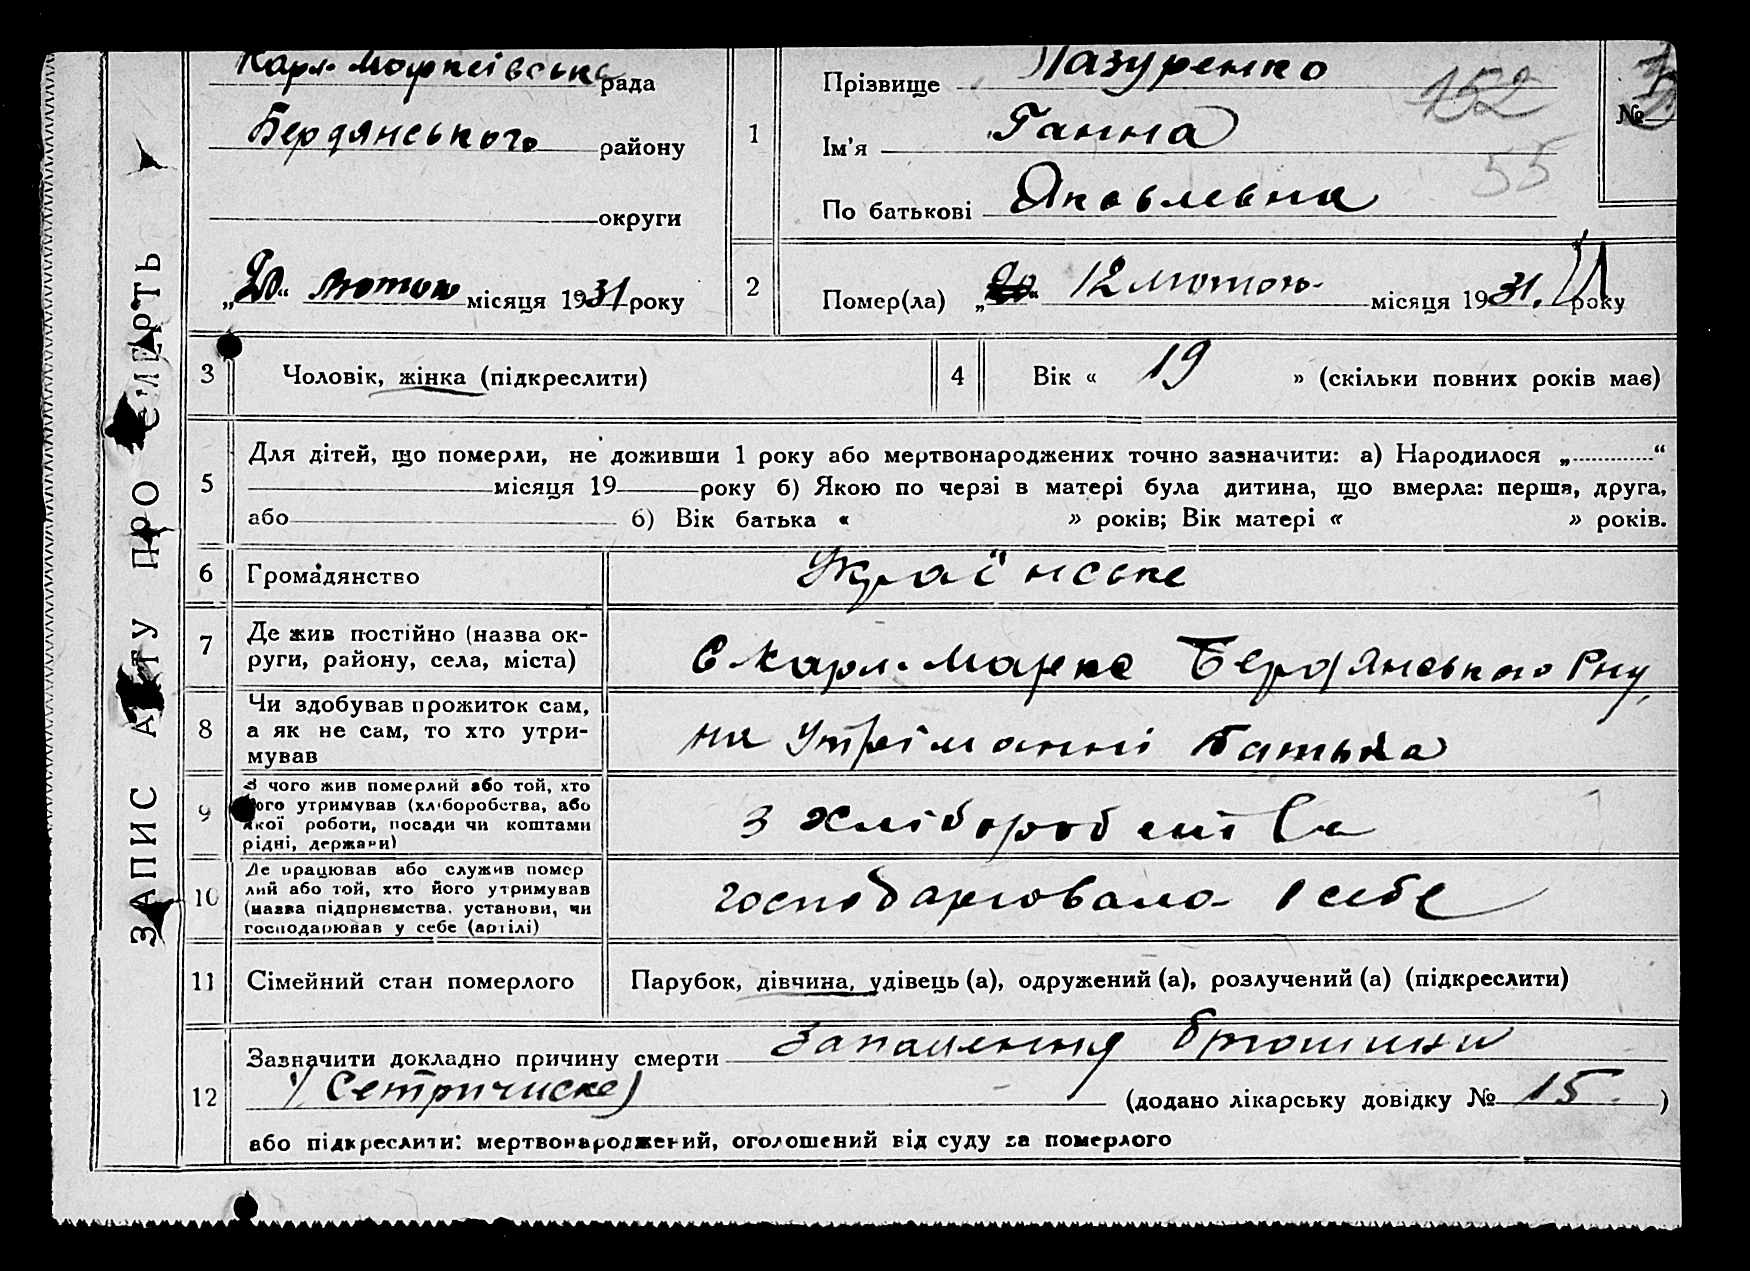 ЗАПИС АКТУ ПРО СМЕРТЬ
Карл-Марксівська рада
Бердянського району
округи
„20“ лютого місяця 1931 року
1
Прізвище Лазуренко
Ім'я Ганна
По батькові Яковлевна
152
55
№
2
Помер(ла) „ “ 12 лютого місяця 1931. року
3
Чоловік, жінка (підкреслити)
4
Вік « 19 » (скільки повних років має)
5
Для дітей, що померли, не доживши 1 року або мертвонароджених точно зазначити: а) Народилося „ “
місяця 19 року б) Якою по черзі в матері була дитина, що вмерла: перша, друга,
або б) Вік батька « » років; Вік матері « » років.
6
Громадянство Украінське
7
Де жив постійно (назва ок-
руги, району, села, міста)
С Карл-Маркс Бердянського Р-ну
8
Чи здобував прожиток сам,
а як не сам, то хто утри-
мував
на утріманні батька
9
З чого жив померлий або той, хто
його утримував (хліборобства, або
якої роботи, посади чи коштами
рідні, держави)
з хліборобства
10
Де працював або служив помер
лий або той, хто його утримував
(назва підприємства, установи, чи
господарював у себе (артілі)
господарювала в себе
11
Сімейний стан померлого
Парубок, дівчина, удівець (а), одружений (а), розлучений (а) (підкреслити)
12
Зазначити докладно причину смерти Запалення брюшини
(додано лікарську довідку № 15 )
або підкреслити: мертвонароджений, оголошений від суду за померлого